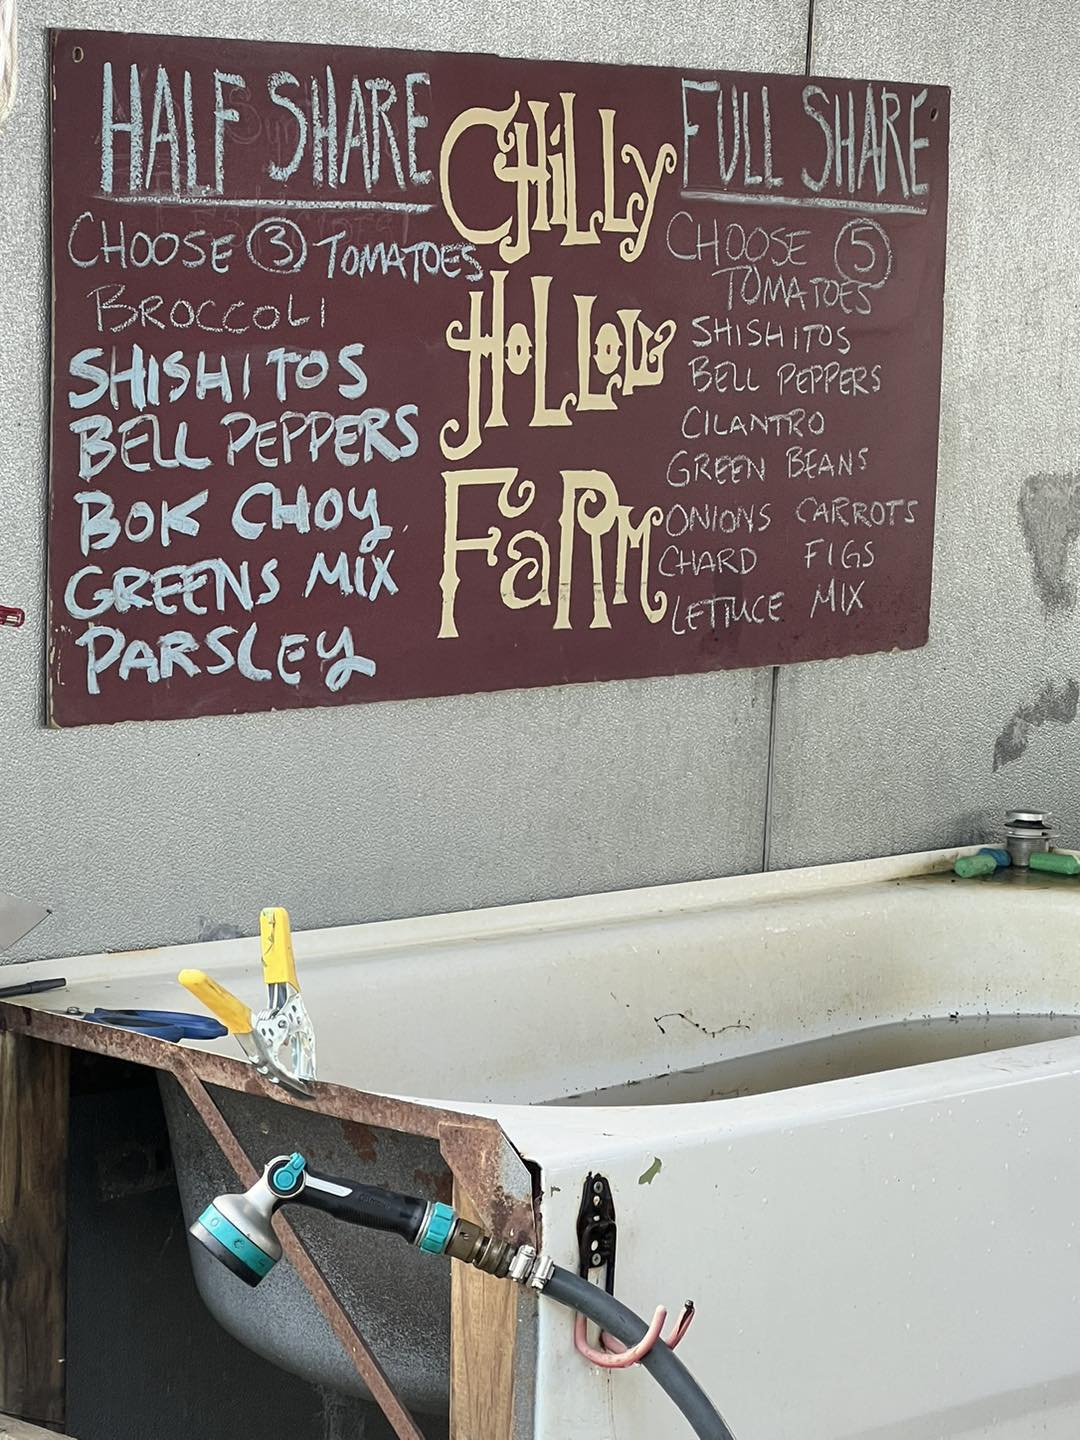 HALF SHARE
CHOOSE 3 TOMATOES
BROCCOLI
SHISHITOS
BELL PEPPERS
BOK CHOY
GREENS MIX
PARSLEY
CHiLLy
HoLLoW
FaRM
FULL SHARE
CHOOSE 5
TOMATOES
SHISHITOS
BELL PEPPERS
CILANTRO
GREEN BEANS
ONIONS CARROTS
CHARD FIGS
LETTUCE MIX